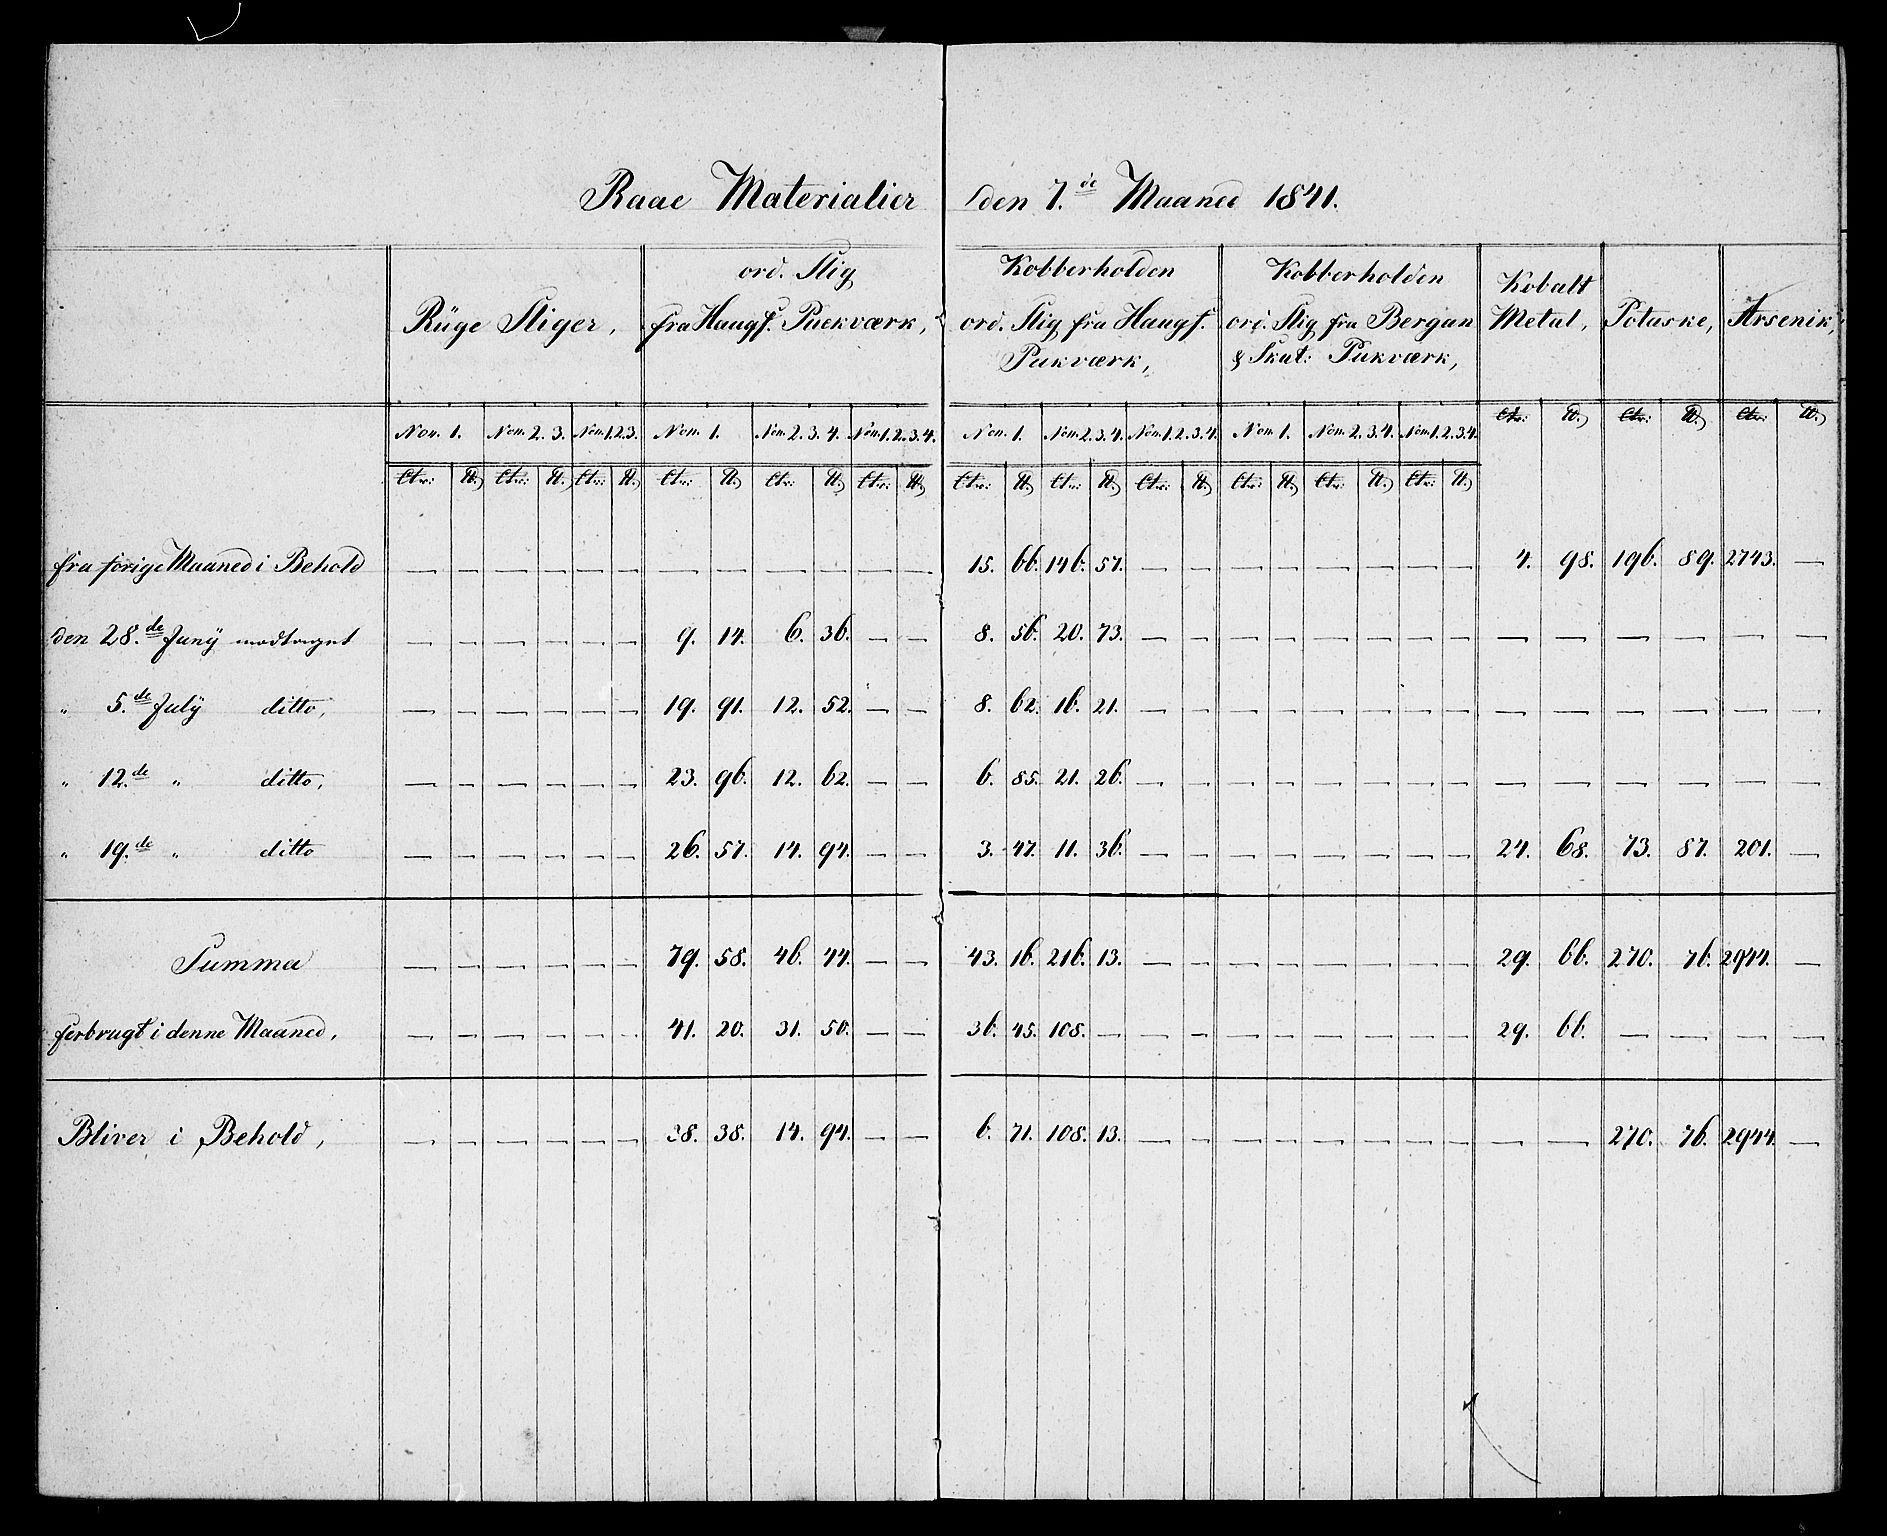 Raae Materialier den 7.de Maaned 1841.
Rüge Sliger,
ord. Slig
fra Haugf. Puckværk,
Kobberholden
ord. Slig fra Haugf.
Pukværk,
Kobberholden
ord. Slig fra Bergan
& Skut: Pukværk,
Kobalt
Metal,
Potaske,
Arsenik,
Non. 1. Non. 2. 3. Non. 1. 2. 3. Non. 1. Non. 2. 3. 4. Non. 1. 2. 3. 4. Non. 1. Non. 2. 3. 4. Non. 1. 2. 3. 4. Non. 1. Non. 2. 3. 4. Non. 1. 2. 3. 4. Ctr: ℔ Ctr: ℔ Ctr: ℔
Ctr: ℔ Ctr: ℔ Ctr: ℔ Ctr: ℔ Ctr: ℔ Ctr: ℔ Ctr: ℔ Ctr: ℔ Ctr: ℔ Ctr: ℔ Ctr: ℔ Ctr: ℔
fra forige Maaned i Behold — — — — — — — — — — — — 15. 66. 146. 57. — — — — — — — — 4. 98. 196. 89. 2743. —
den 28.de Juny modtaget — — — — — — 9. 14. 6. 36. — — 8. 56. 20. 73. — — — — — — — — — — — — — —
" 5.de July ditto, — — — — — — 19. 91. 12. 52. — — 8. 62. 16. 21. — — — — — — — — — — — — — —
" 12.de " ditto, — — — — — — 23. 96. 12. 62. — — 6. 85. 21. 26. — — — — — — — — — — — — — —
" 19.de " ditto — — — — — — 26. 57. 14. 94. — — 3. 47. 11. 36. — — — — — — — — 24. 68. 73. 87. 201. —
Summa — — — — — — 79. 58. 46. 44. — — 43. 16. 216. 13. — — — — — — — — 29. 66. 270. 76. 2944. —
forbrugt i denne Maaned, — — — — — — 41. 20. 31. 50. — — 36. 45. 108. — — — — — — — — — 29. 66. — — — —
Bliver i Behold, — — — — — — 38. 38. 14. 94. — — 6. 71. 108. 13. — — — — — — — — — — 270. 76. 2944. —